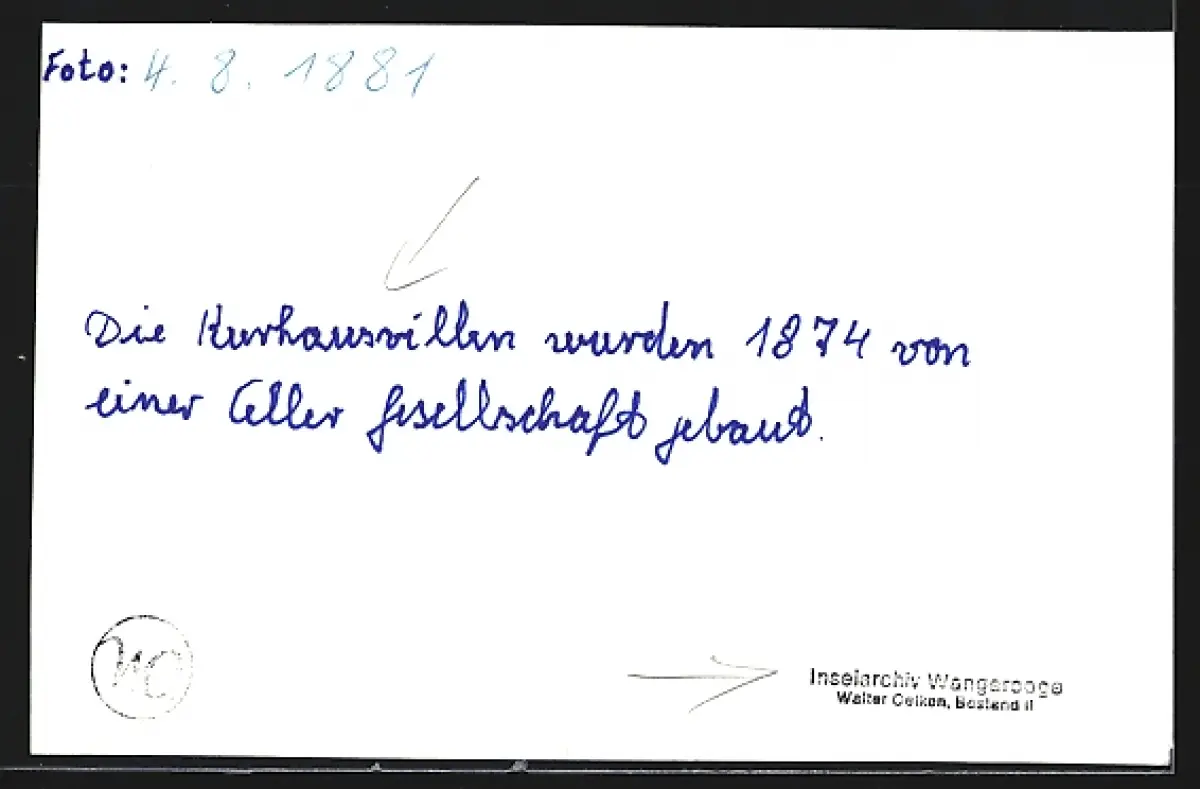 Foto: 4. 8. 1881
Die Kurhausvillen wurden 1874 von
einer Celler Gesellschaft gebaut.
WO
Inselarchiv Wangerooge
Walter Oelken, Bestand II